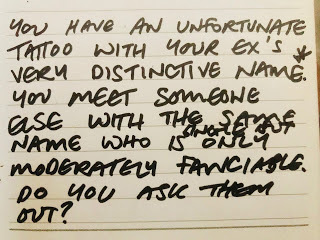 YOU HAVE AN UNFORTUNATE
TATTOO WITH YOUR EX'S
VERY DISTINCTIVE NAME.*
YOU MEET SOMEONE
ELSE WITH THE SAME
SINGLE BUT
NAME WHO IS ONLY
MODERATELY FANCIABLE.
DO YOU ASK THEM
OUT?